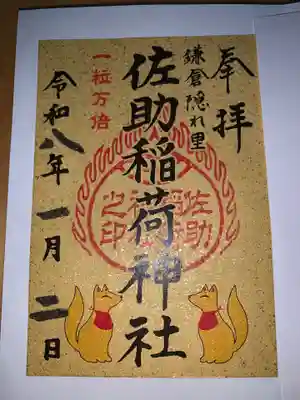 奉拝
鎌倉隠れ里
佐助稲荷神社
一粒万倍
令和八年 一月 二日